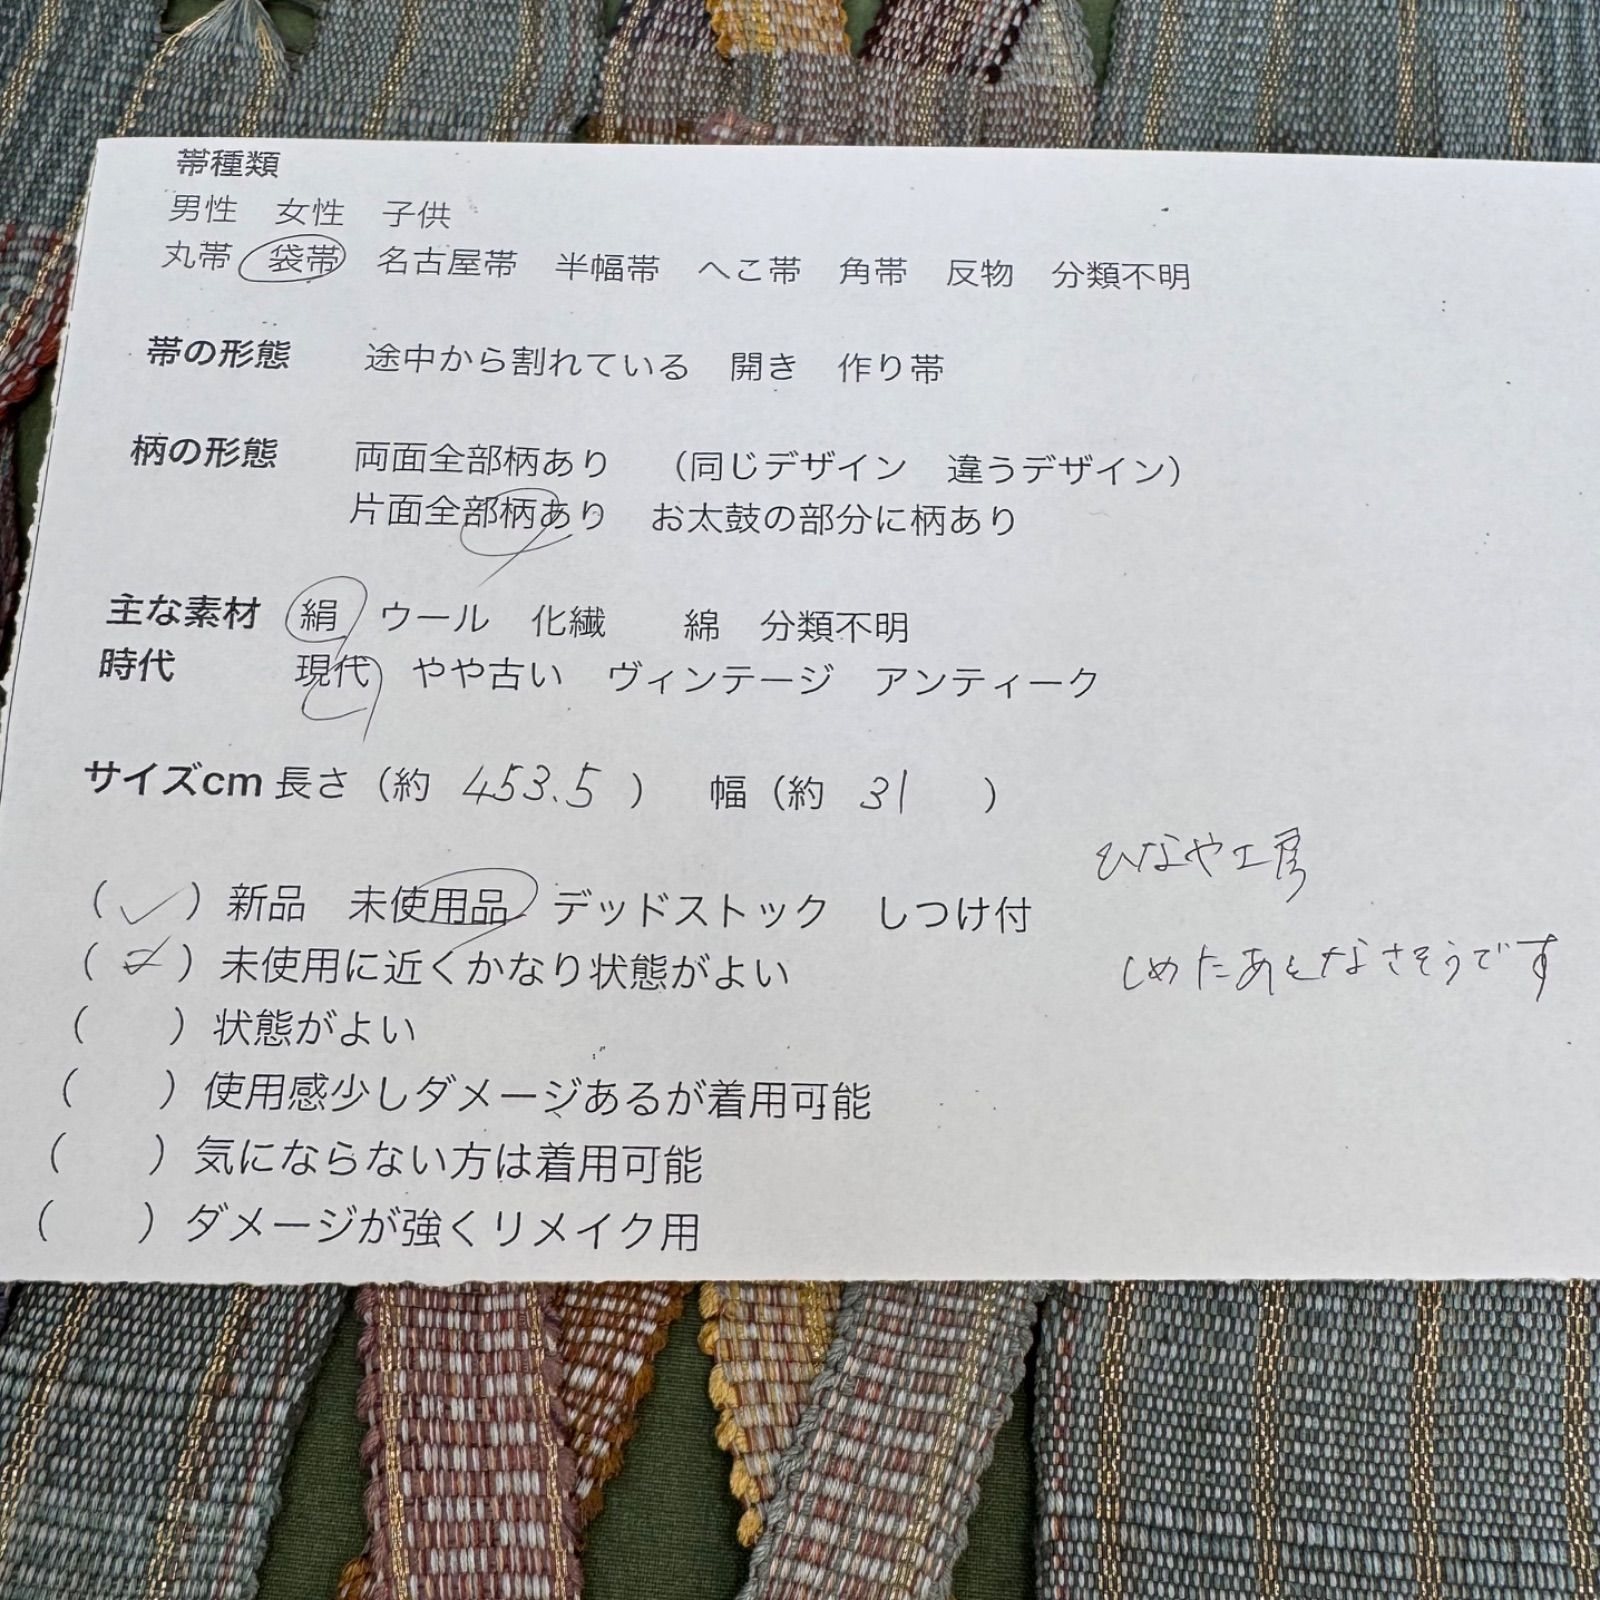 帯種類
男性 女性 子供
丸帯 袋帯 名古屋帯 半幅帯 へこ帯 角帯 反物 分類不明
帯の形態 途中から割れている 開き 作り帯
柄の形態 両面全部柄あり (同じデザイン 違うデザイン)
片面全部柄あり お太鼓の部分に柄あり
主な素材 絹 ウール 化繊 綿 分類不明
時代 現代 やや古い ヴィンテージ アンティーク
サイズcm 長さ (約 453.5 ) 幅 (約 31 )
ひなや工房
( ✓ ) 新品 未使用品 デッドストック しつけ付
( ) 未使用に近くかなり状態がよい
しめたあとなさそうです
( ) 状態がよい
( ) 使用感少しダメージあるが着用可能
( ) 気にならない方は着用可能
( ) ダメージが強くリメイク用